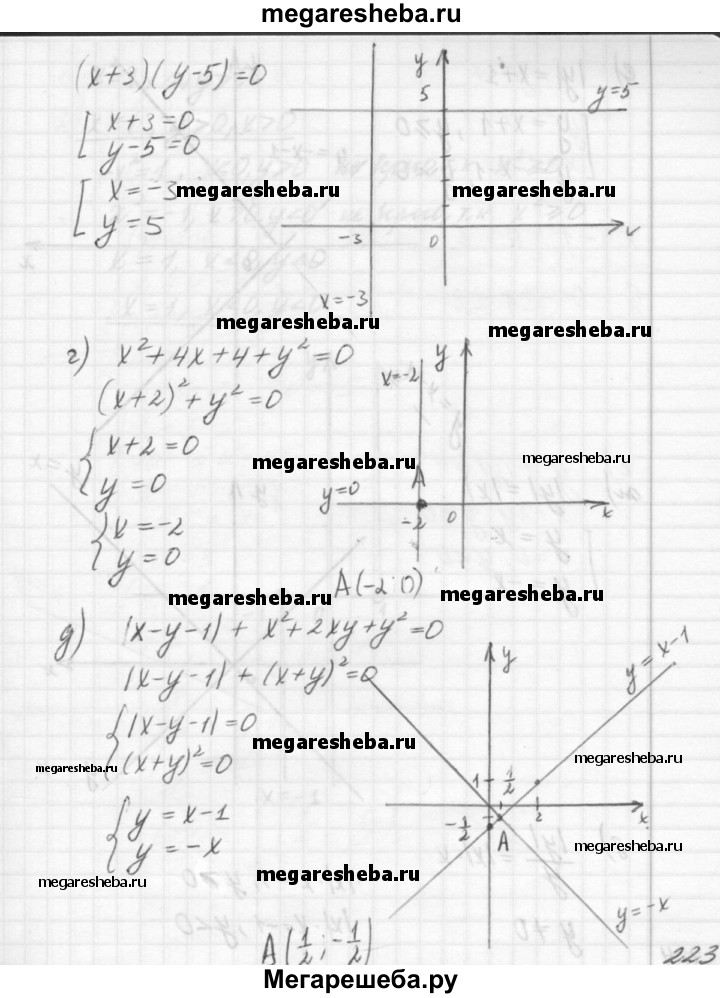 megaresheba.ru
(x+3)(y-5)=0
[ x+3=0
y-5=0
[ x=-3
y=5
y
5
y=5
-3
0
x
x=-3
megaresheba.ru
megaresheba.ru
megaresheba.ru
megaresheba.ru
г) x²+4x+4+y²=0
(x+2)²+y²=0
{ x+2=0
y=0
{ x=-2
y=0
y
x=-2
A
y=0
-2
0
x
A(-2;0)
megaresheba.ru
megaresheba.ru
megaresheba.ru
megaresheba.ru
д) |x-y-1|+x²+2xy+y²=0
|x-y-1|+(x+y)²=0
{ |x-y-1|=0
(x+y)²=0
{ y=x-1
y=-x
A(1/2;-1/2)
y
y=x-1
1
1/2
2
x
-1/2
A
y=-x
megaresheba.ru
megaresheba.ru
megaresheba.ru
megaresheba.ru
megaresheba.ru
megaresheba.ru
223
Мегарешеба.ру